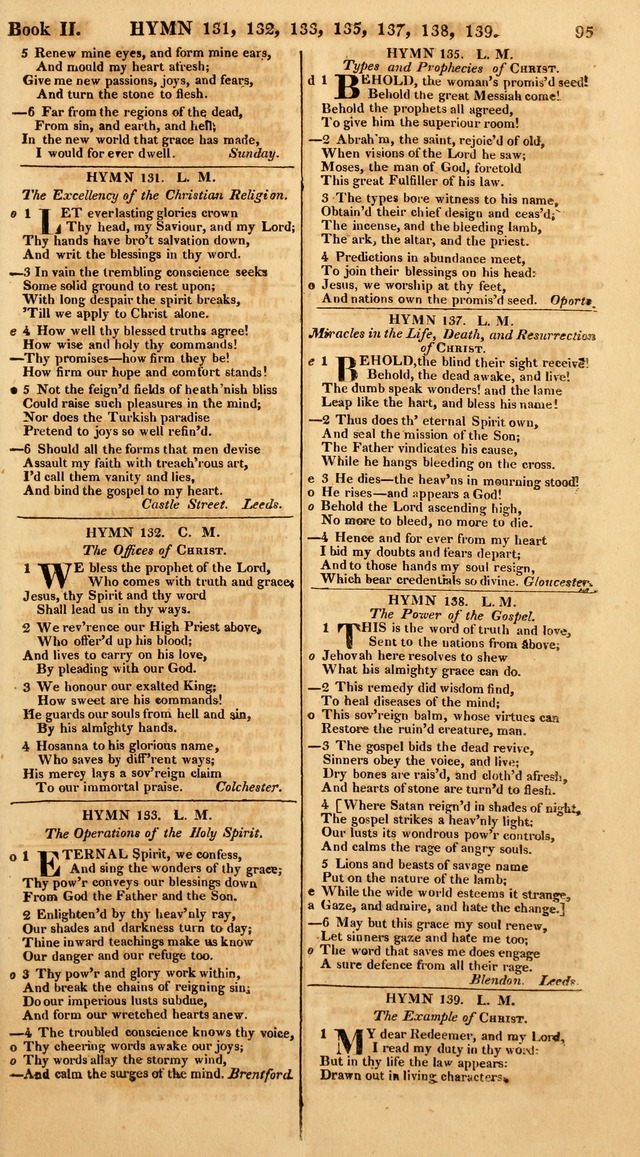 Book II. HYMN 131, 132, 133, 135, 137, 138, 139. 95
5 Renew mine eyes, and form mine ears,
And mould my heart afresh;
Give me new passions, joys, and fears,
And turn the stone to flesh.
—6 Far from the regions of the dead,
From sin, and earth, and hell;
In the new world that grace has made,
I would for ever dwell. Sunday.
HYMN 131. L. M.
The Excellency of the Christian Religion.
o 1 LET everlasting glories crown
Thy head, my Saviour, and my Lord;
Thy hands have bro't salvation down,
And writ the blessings in thy word.
—3 In vain the trembling conscience seeks
Some solid ground to rest upon;
With long despair the spirit breaks,
'Till we apply to Christ alone.
e 4 How well thy blessed truths agree!
How wise and holy thy commands!
—Thy promises—how firm they be!
How firm our hope and comfort stands!
• 5 Not the feign'd fields of heath'nish bliss
Could raise such pleasures in the mind;
Nor does the Turkish paradise
Pretend to joys so well refin'd.
—6 Should all the forms that men devise
Assault my faith with treach'rous art,
I'd call them vanity and lies,
And bind the gospel to my heart.
Castle Street. Leeds.
HYMN 132. C. M.
The Offices of CHRIST.
1 WE bless the prophet of the Lord,
Who comes with truth and grace;
Jesus, thy Spirit and thy word
Shall lead us in thy ways.
2 We rev'rence our High Priest above,
Who offer'd up his blood;
And lives to carry on his love,
By pleading with our God.
3 We honour our exalted King;
How sweet are his commands!
He guards our souls from hell and sin,
By his almighty hands.
4 Hosanna to his glorious name,
Who saves by diff'rent ways;
His mercy lays a sov'reign claim
To our immortal praise. Colchester.
HYMN 133. L. M.
The Operations of the Holy Spirit.
o 1 ETERNAL Spirit, we confess,
And sing the wonders of thy grace;
Thy pow'r conveys our blessings down
From God the Father and the Son.
2 Enlighten'd by thy heav'nly ray,
Our shades and darkness turn to day;
Thine inward teachings make us know
Our danger and our refuge too.
o 3 Thy pow'r and glory work within,
And break the chains of reigning sin;
Do our imperious lusts subdue,
And form our wretched hearts anew.
—4 The troubled conscience knows thy voice,
o Thy cheering words awake our joys;
o Thy words allay the stormy wind,
—And calm the surges of the mind. Brentford.
HYMN 135. L. M.
Types and Prophecies of CHRIST.
d 1 BEHOLD, the woman's promis'd seed!
Behold the great Messiah come!
Behold the prophets all agreed,
To give him the superiour room!
—2 Abrah'm, the saint, rejoic'd of old,
When visions of the Lord he saw;
Moses, the man of God, foretold
This great Fulfiller of his law.
3 The types bore witness to his name,
Obtain'd their chief design and ceas'd;
The incense, and the bleeding lamb,
The ark, the altar, and the priest.
4 Predictions in abundance meet,
To join their blessings on his head:
o Jesus, we worship at thy feet,
And nations own the promis'd seed. Oporto.
HYMN 137. L. M.
Miracles in the Life, Death, and Resurrection
of CHRIST.
e 1 BEHOLD, the blind their sight receive!
Behold, the dead awake, and live!
The dumb speak wonders! and the lame
Leap like the hart, and bless his name!
—2 Thus does th' eternal Spirit own,
And seal the mission of the Son;
The Father vindicates his cause,
While he hangs bleeding on the cross.
e 3 He dies—the heav'ns in mourning stood!
o He rises—and appears a God!
o Behold the Lord ascending high,
No more to bleed, no more to die.
—4 Hence and for ever from my heart
I bid my doubts and fears depart;
And to those hands my soul resign,
Which bear credentials so divine. Gloucester.
HYMN 138. L. M.
The Power of the Gospel.
1 THIS is the word of truth and love,
Sent to the nations from above;
o Jehovah here resolves to shew
What his almighty grace can do.
—2 This remedy did wisdom find,
To heal diseases of the mind;
o This sov'reign balm, whose virtues can
Restore the ruin'd creature, man.
—3 The gospel bids the dead revive,
Sinners obey the voice, and live;
Dry bones are rais'd, and cloth'd afresh,
And hearts of stone are turn'd to flesh.
4 [Where Satan reign'd in shades of night,
The gospel strikes a heav'nly light;
Our lusts its wondrous pow'r controls,
And calms the rage of angry souls.
5 Lions and beasts of savage name
Put on the nature of the lamb;
e While the wide world esteems it strange,
a Gaze, and admire, and hate the change.]
—6 May but this grace my soul renew,
Let sinners gaze and hate me too;
o The word that saves me does engage
A sure defence from all their rage.
Blendon. Leeds.
HYMN 139. L. M.
The Example of CHRIST.
1 MY dear Redeemer, and my Lord,
I read my duty in thy word:
But in thy life the law appears:
Drawn out in living characters.